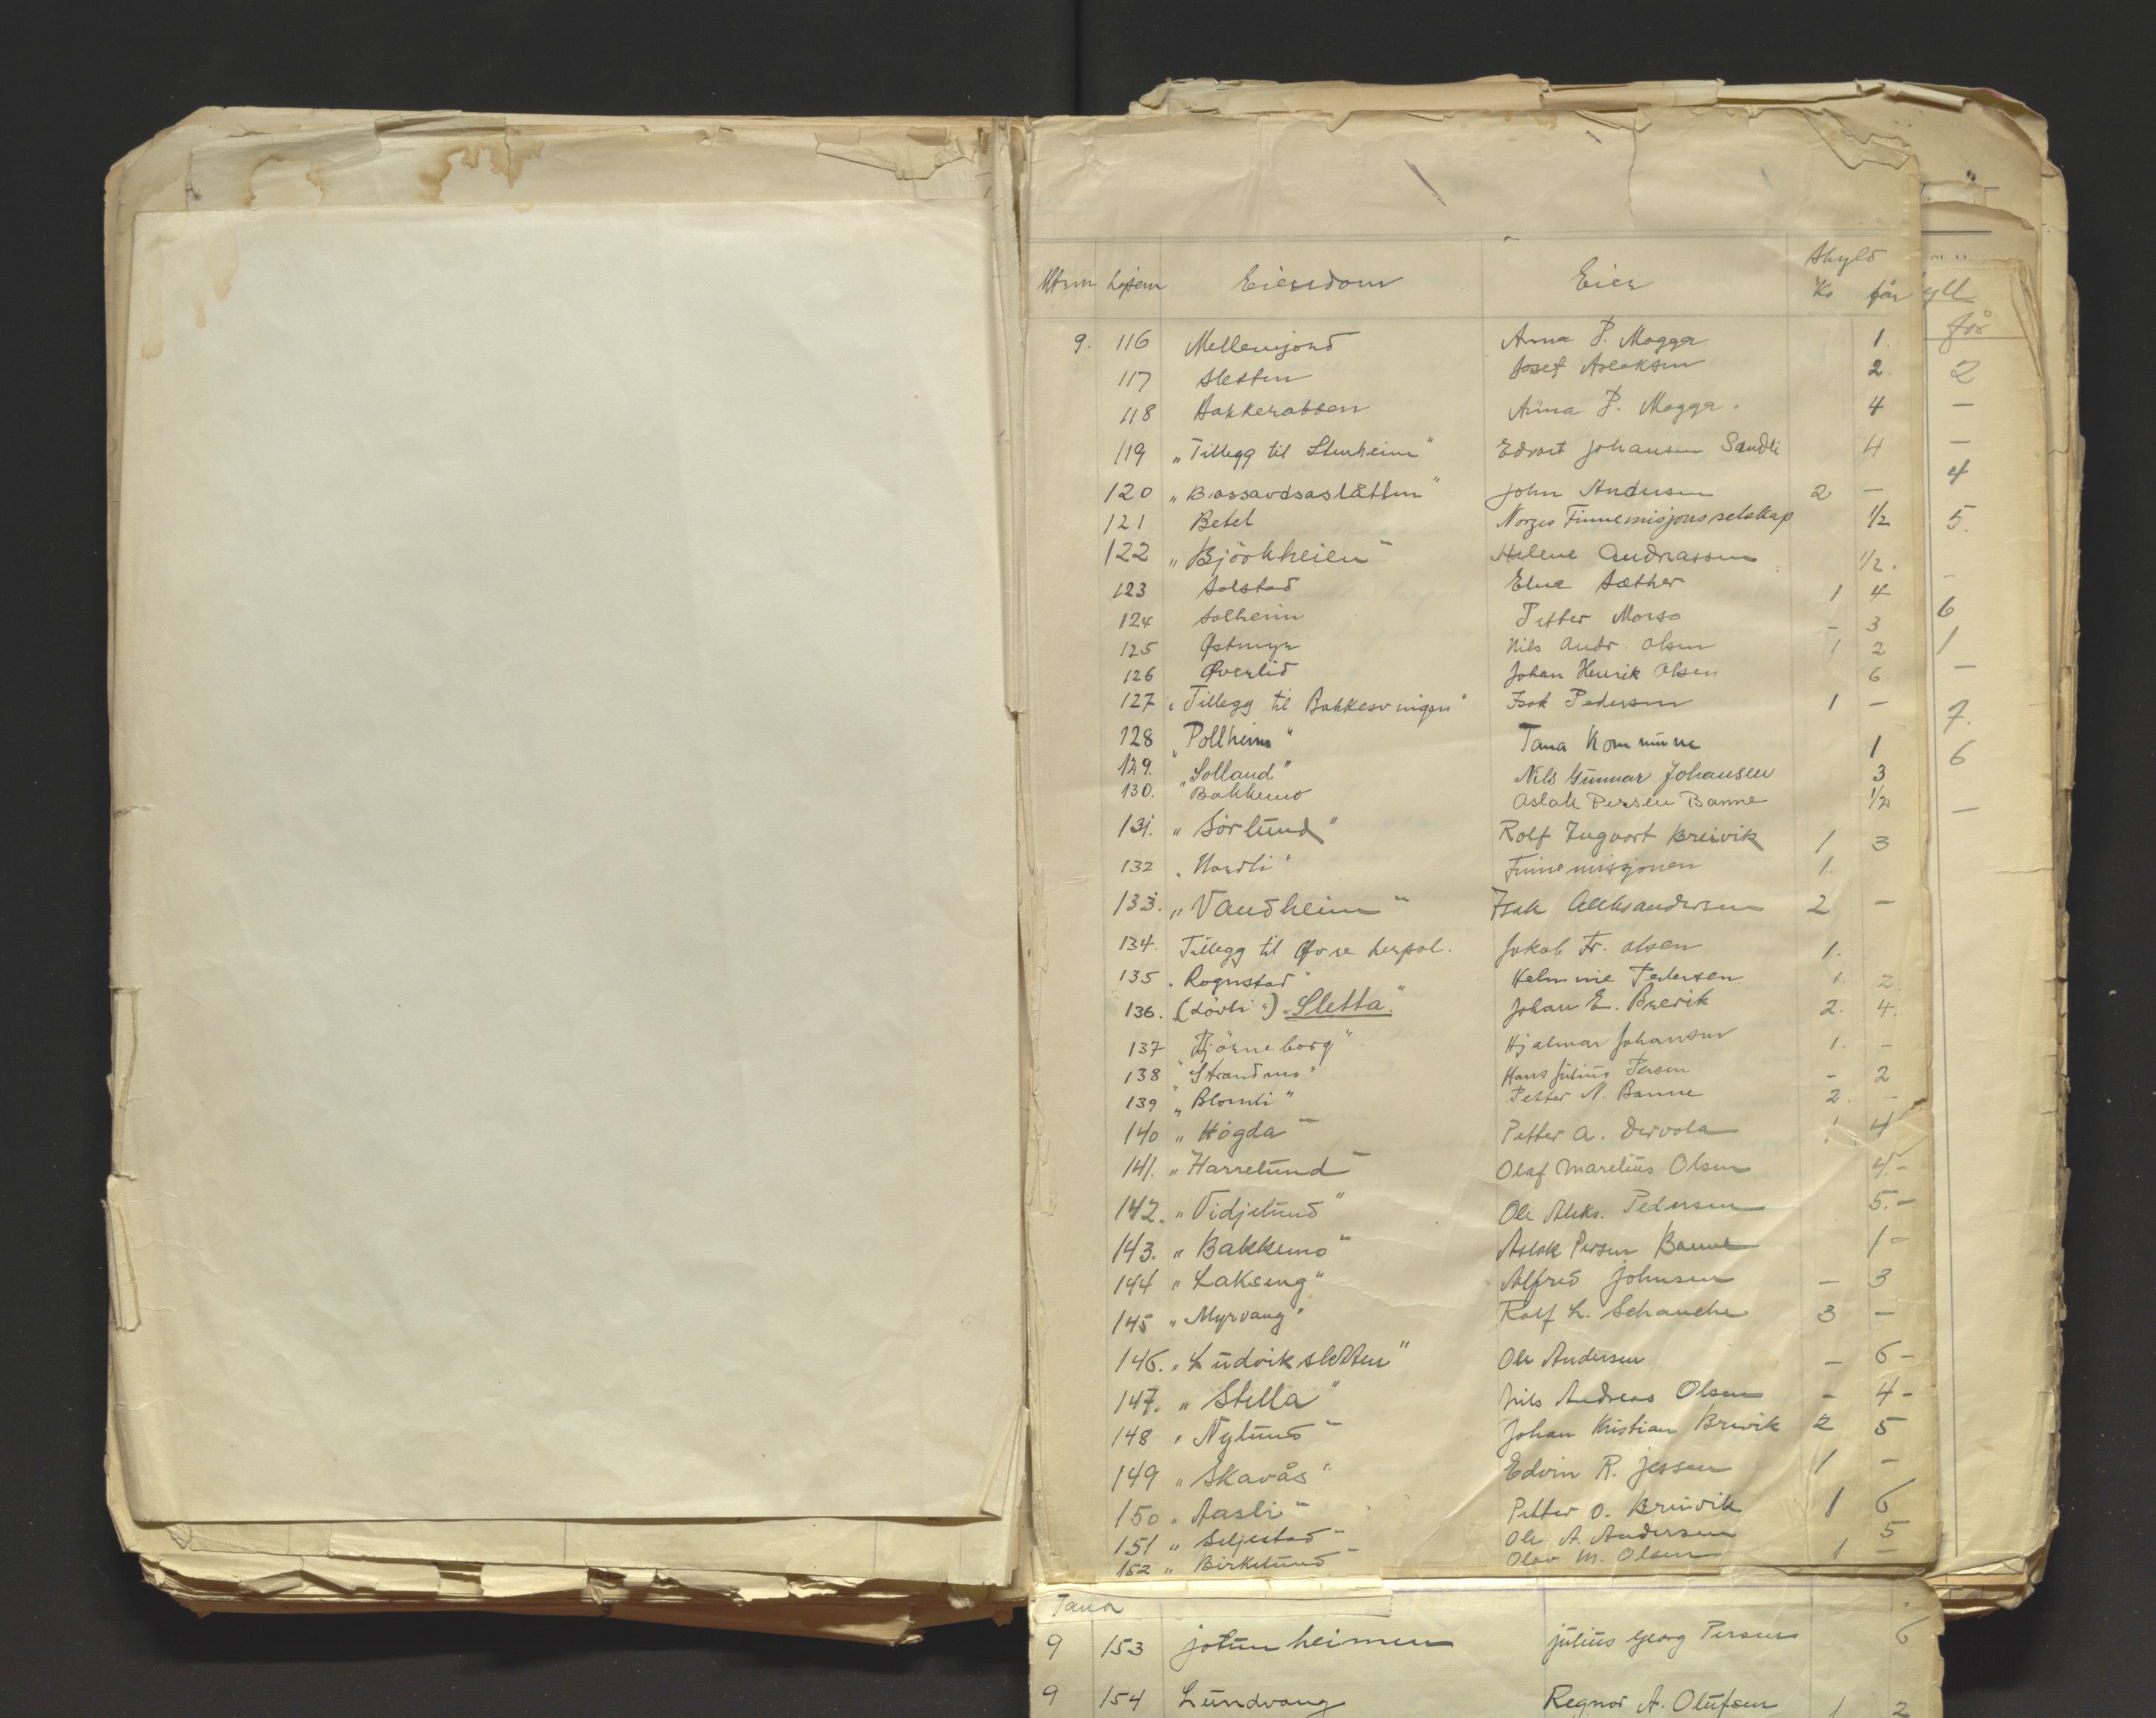 Skyld
Mtrn Løpenr Eiendom Eier Kr før yll
før
9. 116 Mellemjord Anna P. Mogga 1. 2
117 Sletten Josef Aslaksen 2. —
118 Bakkerabben Anna P. Mogga. 4 —
119 „Tillegg til Stenheim" Edvart Johansen Sandli 4 4
120 „Biossavdsaslåtten" John Andersen 2 —
121 Betel Norges Finnemisjonsselskap 1/2 5.
122 „Björkheien" Helene Andreassen 1/2. -
123 Solstad Elna Sæther 1 4 6
124 Solheim Petter Morso - 3 1
125 Østmyr Nils Andr. Olsen 1 2 —
126 Øverlid Johan Henrik Olsen 6
127 „Tillegg til Bakkesvingen" Isak Pedersen 1 - 7.
128 „Pollheim" Tana Kommune 1 6
129. „Solland" Nils Gunnar Johansen 3
130. "Bakkemo Aslak Persen Banne 1/2 —
131. „Sörlund" Rolf Ingvart Breivik 1 3
132 „Nordli" Finnemissjonen 1.
133. „Vandheim" Isak Aleksandersen 2 -
134. Tillegg til Øvre Jakob Fr. Olsen 1.
135 „Rognstad" Helmine Pedersen 1. 2
136. (Lövli") „Sletta." Johan E. Brevik 2. 4.
137 „Tjörneborg" Hjalmar Johansen 1. -
138 „Strandmo" Hans Julius Persen - 2
139 „Blomli" Petter N. Banne 2. -
140 „Högda" Petter A. Dervola 1 4
141. „Harrelund" Olaf Marelius Olsen 4.-
142. „Vidjelund" Ole Aleks. Pedersen 5.-
143. „Bakkemo" Aslak Persen Banne 1-
144 „Lakseng" Alfred Johnsen - 3
145 „Myrvang" Rolf L. Schanche 3 -
146. „Ludviksletten" Ole Andersen - 6-
147. „Stella" Nils Andreas Olsen - 4-
148 „Nylund" Johan Kristian Brevik 2 5
149 „Skavås" Edvin R. Jessen 1 -
150 „Aasli" Petter O. Breivik 1 6
151 „Seljestad" Ole A. Andersen 5
152 „Birkelund" Olav M. Olsen 1 -
Tana
9 153 Jotunheimen Julius Georg Persen 6
9 154 Lundvang Regnor A. Olufsen 1 2